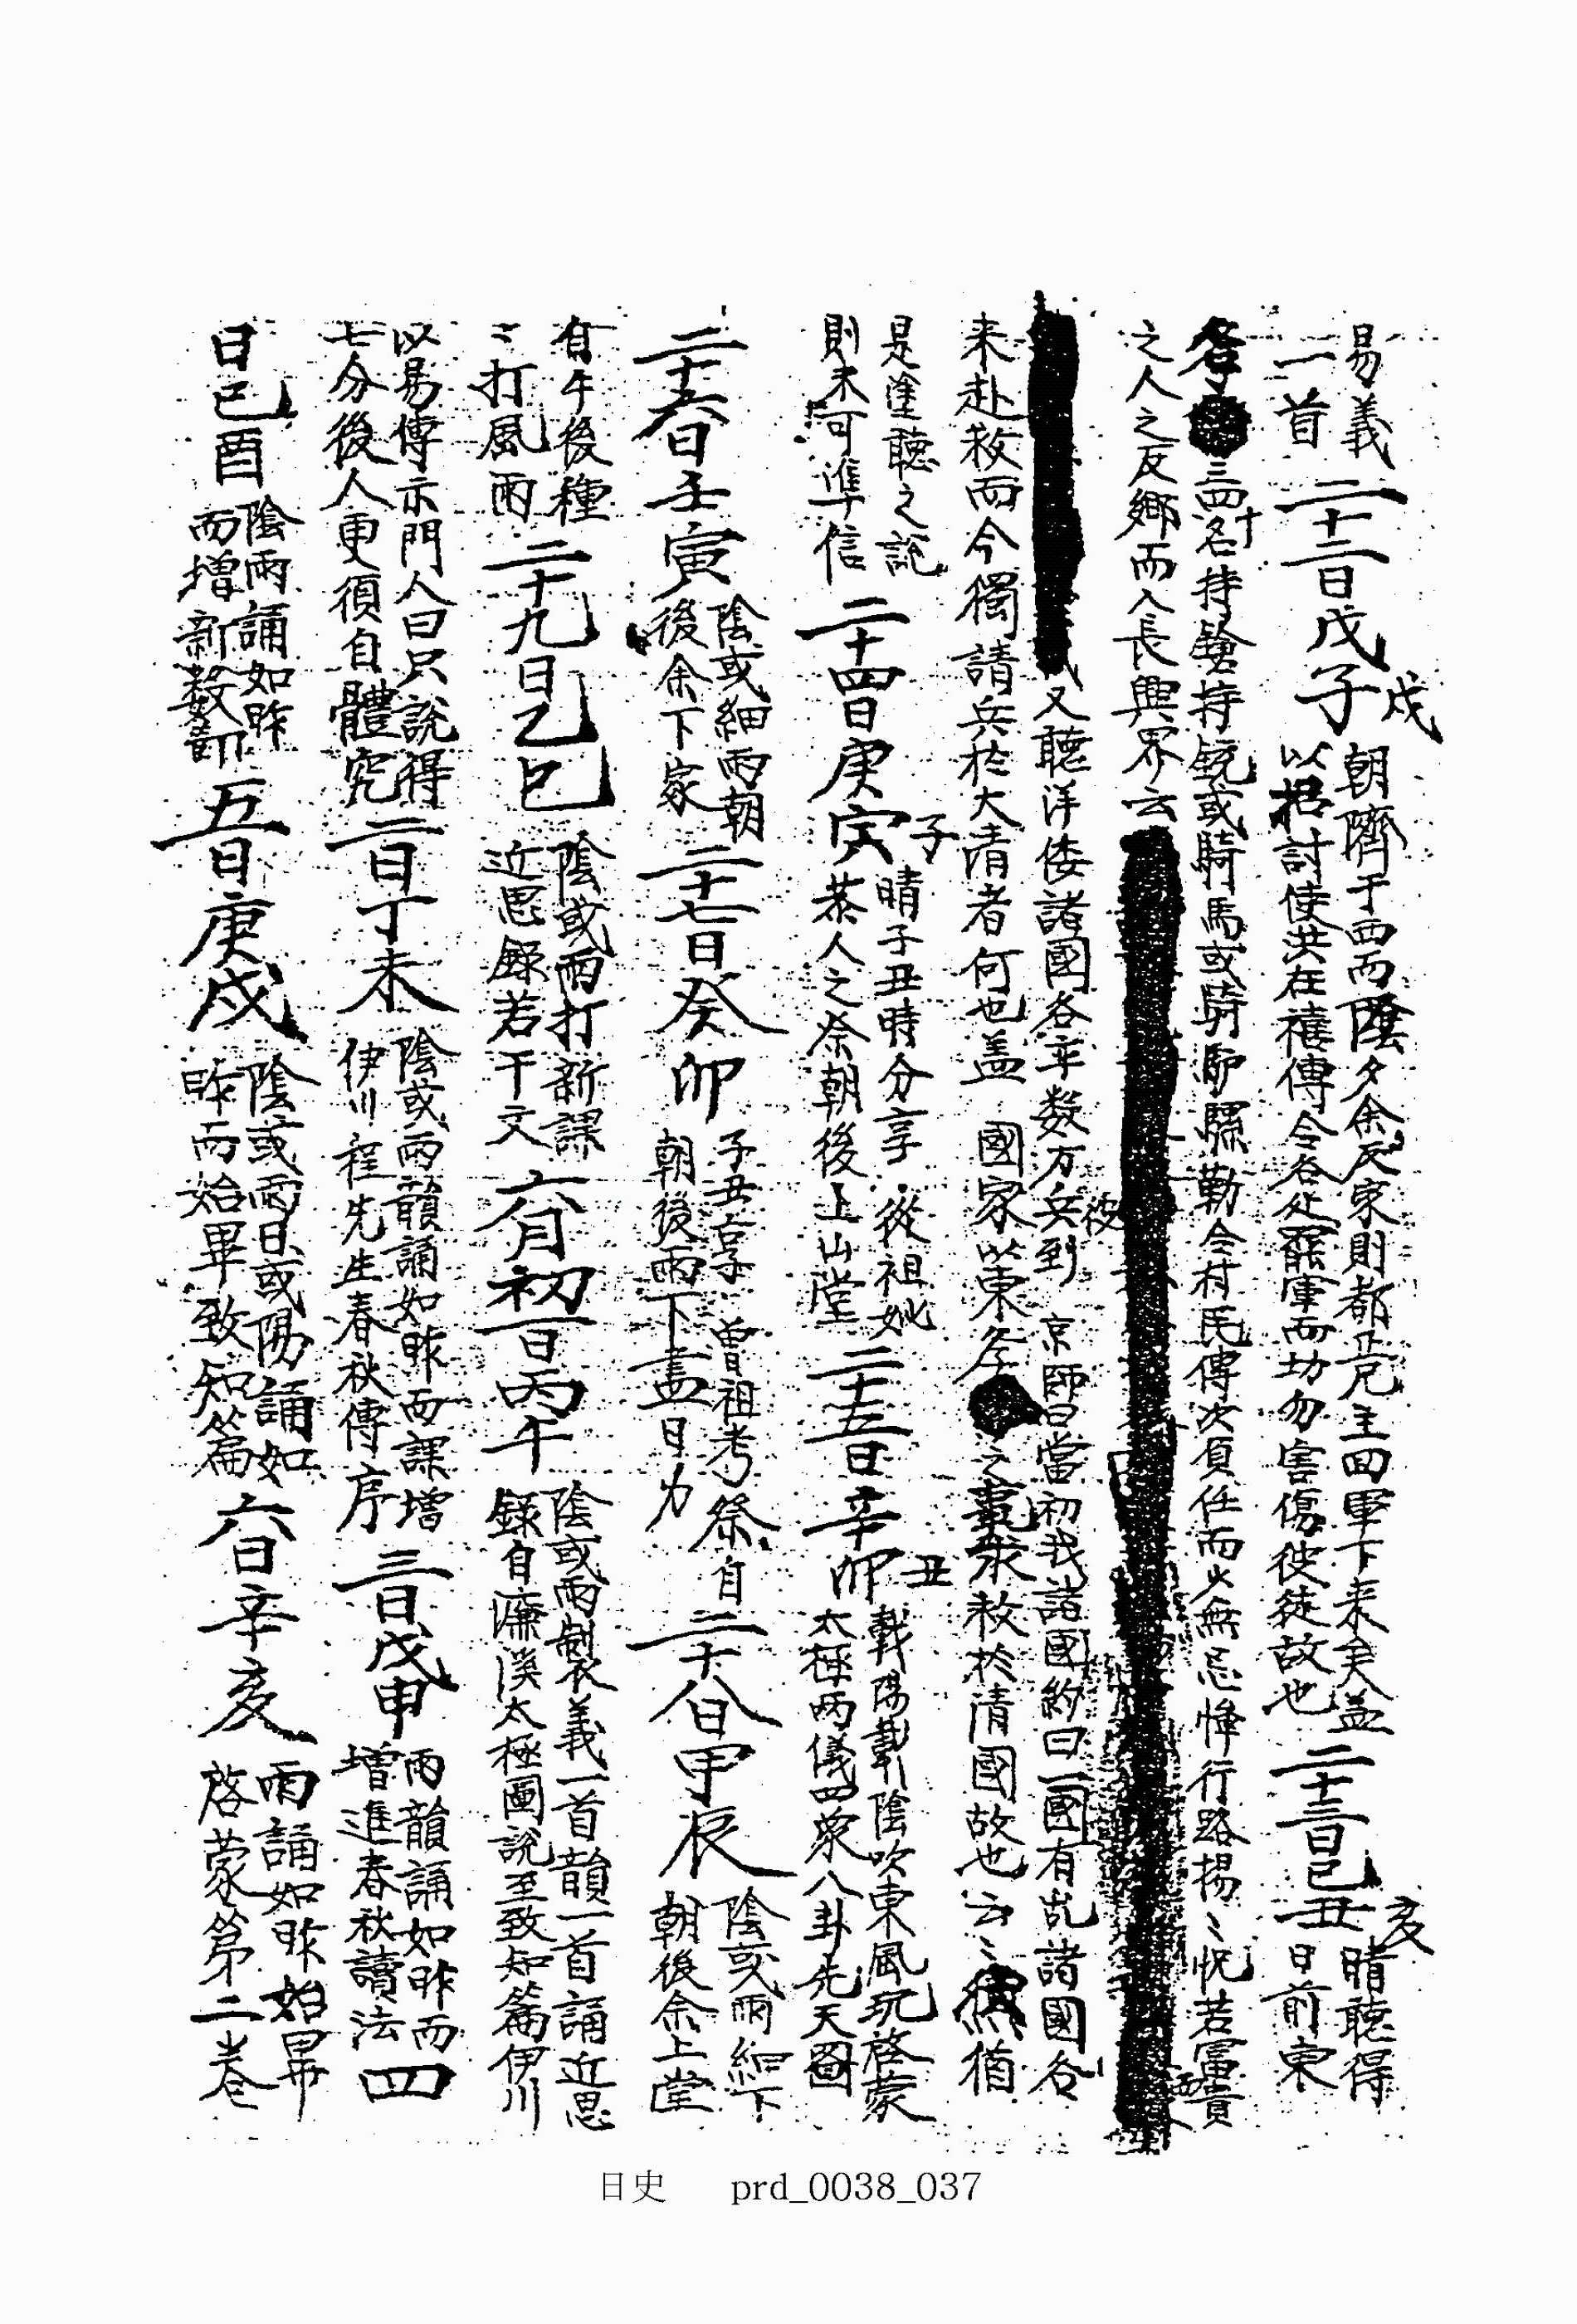 易義
一首
二十二日戊子
戌
朝隮于西而陰夕余反家則都巡兄主回軍下来矣盖
以招討使洪在禧傳令各处罷軍而切勿害傷彼徒故也
二十三日己丑
亥
晴聽得
日前東
各三四十名持鎗持銃或騎馬或騎驴騾勒令村民傳次負任而少無忌惮行路揚〻怳若富貴
之人之反鄉而入長興界云
又聽洋倭諸國各率数万兵到 京師曰當初我諸國約曰一國有乱諸國各
彼
来赴救而今獨請兵於大清者何也盖 國家以東 之 求救於清國故也云〻 猶
是塗聽之說
則未可準信
二十四日庚寅
子
晴子丑時分享 從祖妣
恭人之祭朝後上山堂
二十五日辛卯
丑
載陽載陰吹東風玩啓蒙
太極两儀四象八卦先天圖
二十六日壬寅
陰或細雨朝
後余下家
二十七日癸卯
子丑享 曽祖考祭自
朝後雨下盡日力
二十八日甲辰
陰或雨細下
朝後余上堂
自午後種
〻打風雨
二十九日乙巳
陰或雨打新課
近思錄若干文
六月初一日丙午
陰或雨製義一首韻一首誦近思
錄自濂溪太極圖說至致知篇伊川
以易傳示門人曰只說得
七分後人更須自體究
二日丁未
陰或雨韻誦如昨而課增
伊川程先生春秋傳序
三日戊申
雨韻誦如昨而
增進春秋讀法
四
日己酉
陰雨誦如昨
而增新数節
五日庚戌
陰或雨日或陽誦如
昨而始畢致知篇
六日辛亥
雨誦如昨始畢
啓蒙第二巻
日史 prd_0038_037